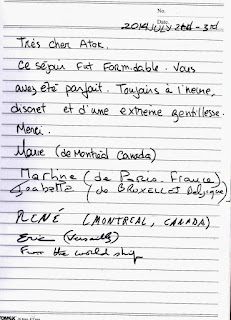 No.
Date.
2014 JULY 2nd - 3rd
Très cher Atok.
Ce séjour fut formidable. Vous
avez été parfait. Toujours à l'heure,
discret et d'une extreme gentillesse.
Merci.
Marie (de Montréal Canada)
Martine (de Paris. France)
Isabelle (de BRUXELLES Belgique)
RENÉ (MONTREAL, CANADA)
Eric (Versailles)
From the world ship